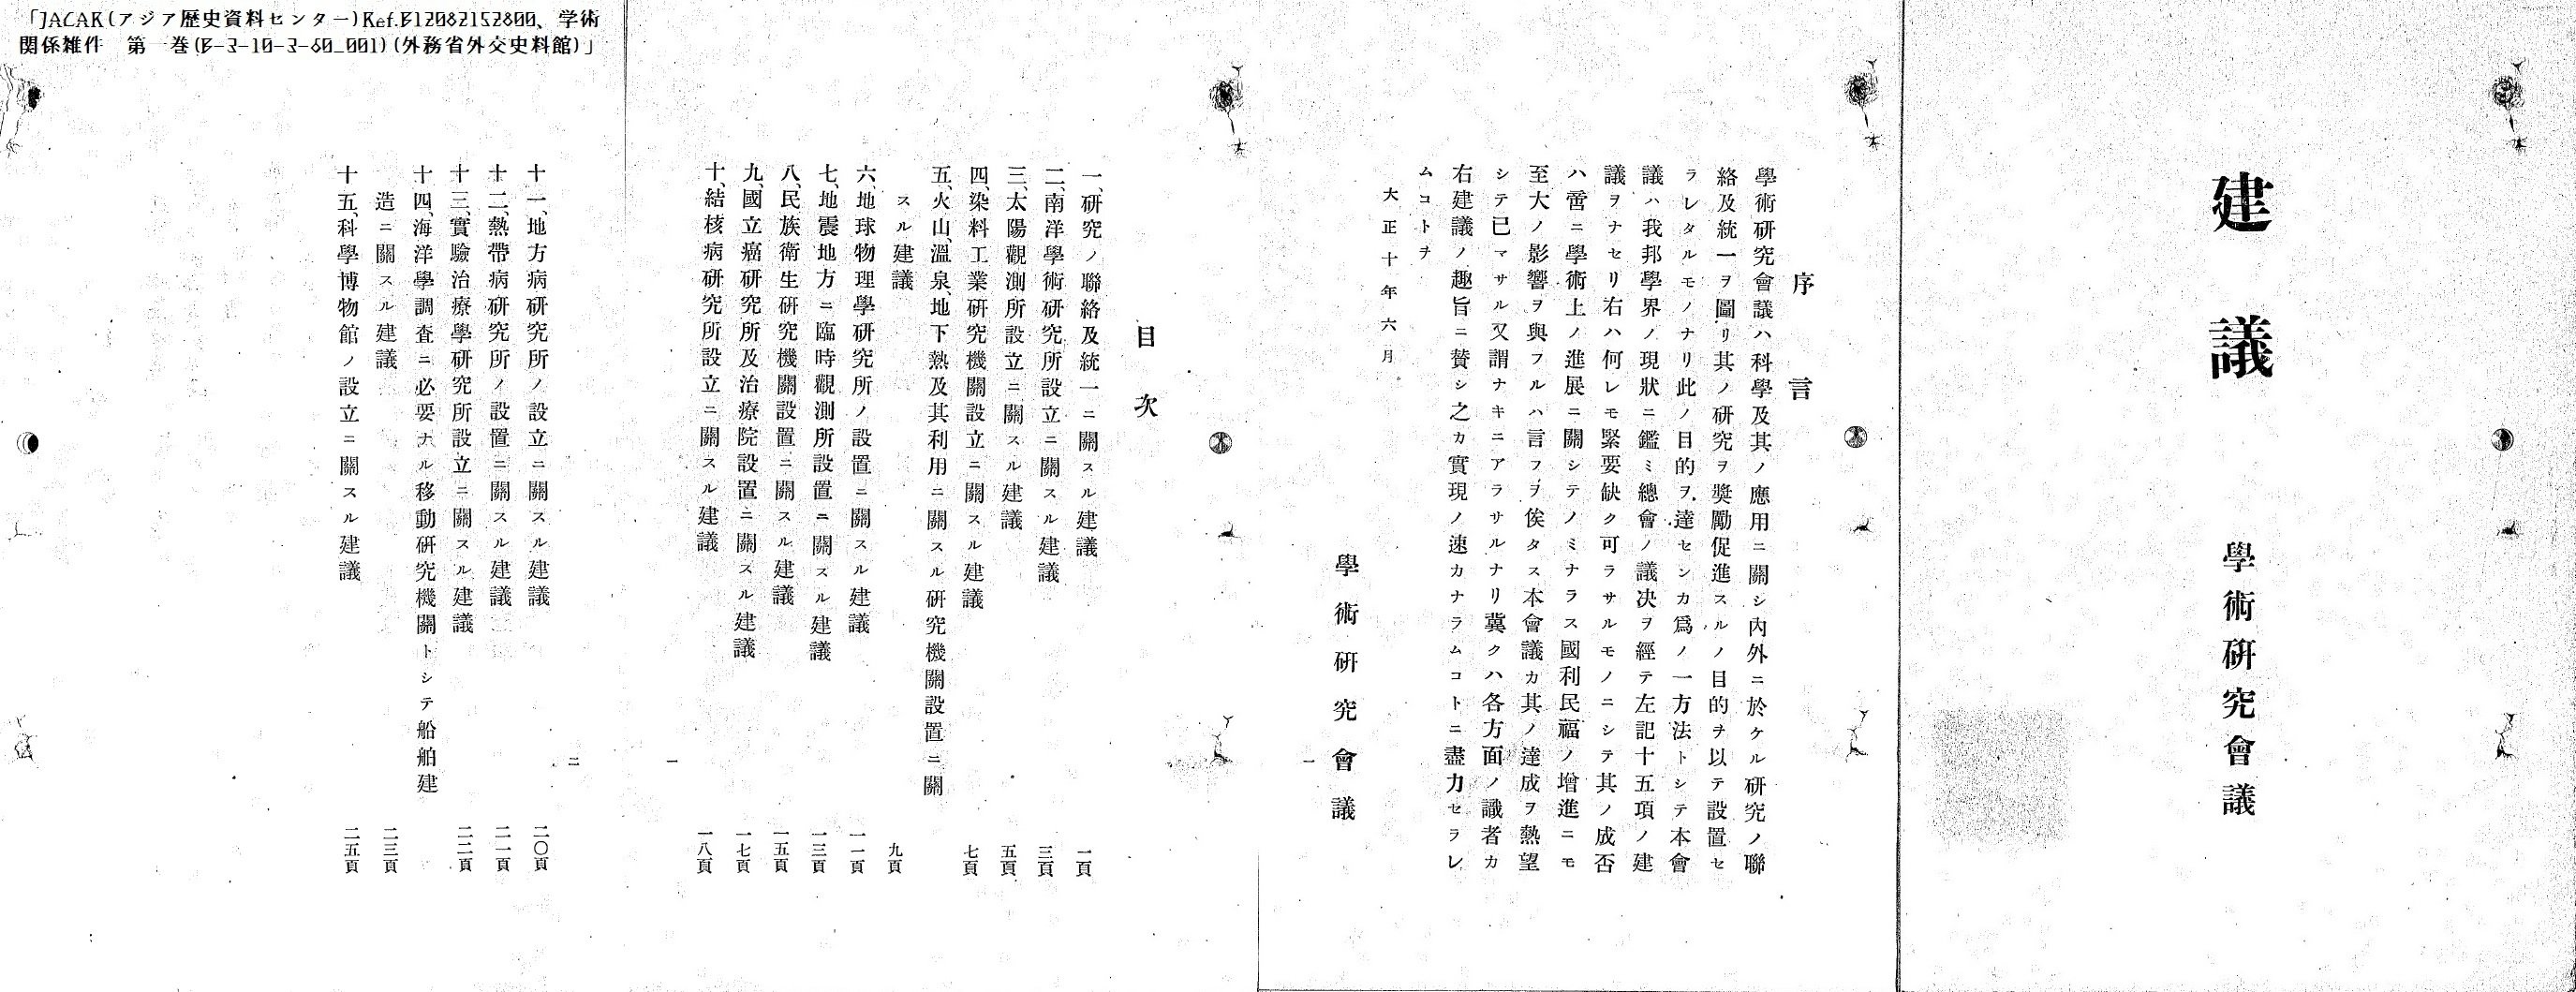 「JACAR(アジア歴史資料センター)Ref.B12082152800、学術
関係雑件　第一巻(B-3-10-3-60_001)(外務省外交史料館)」
建議
學術硏究會議
序言
學術硏究會議ハ科學及其ノ應用ニ關シ內外ニ於ケル硏究ノ聯
絡及統一ヲ圖リ其ノ硏究ヲ奬勵促進スルノ目的ヲ以テ設置セ
ラレタルモノナリ此ノ目的ヲ達センカ爲ノ一方法トシテ本會
議ハ我邦學界ノ現狀ニ鑑ミ總會ノ議決ヲ經テ左記十五項ノ建
議ヲナセリ右ハ何レモ緊要缺ク可ラサルモノニシテ其ノ成否
ハ啻ニ學術上ノ進展ニ關シテノミナラス國利民福ノ增進ニモ
至大ノ影響ヲ與フルハ言フヲ俟タス本會議カ其ノ達成ヲ熱望
シテ已マサル又謂ナキニアラサルナリ冀クハ各方面ノ識者カ
右建議ノ趣旨ニ賛シ之カ實現ノ速カナラムコトニ盡力セラレ
ムコトヲ
大正十年六月
學術硏究會議
一
目次
一、硏究ノ聯絡及統一ニ關スル建議　一頁
二、南洋學術硏究所設立ニ關スル建議　三頁
三、太陽觀測所設立ニ關スル建議　五頁
四、染料工業硏究機關設立ニ關スル建議　七頁
五、火山、溫泉、地下熱及其利用ニ關スル硏究機關設置ニ關
スル建議　九頁
六、地球物理學硏究所ノ設置ニ關スル建議　一一頁
七、地震地方ニ臨時觀測所設置ニ關スル建議　一三頁
八、民族衛生硏究機關設置ニ關スル建議　一五頁
九、國立癌硏究所及治療院設置ニ關スル建議　一七頁
十、結核病硏究所設立ニ關スル建議　一八頁
一
二
十一、地方病硏究所ノ設立ニ關スル建議　二〇頁
十二、熱帶病硏究所ノ設置ニ關スル建議　二一頁
十三、實驗治療學硏究所設立ニ關スル建議　二二頁
十四、海洋學調査ニ必要ナル移動硏究機關トシテ船舶建
造ニ關スル建議　二三頁
十五、科學博物館ノ設立ニ關スル建議　二五頁